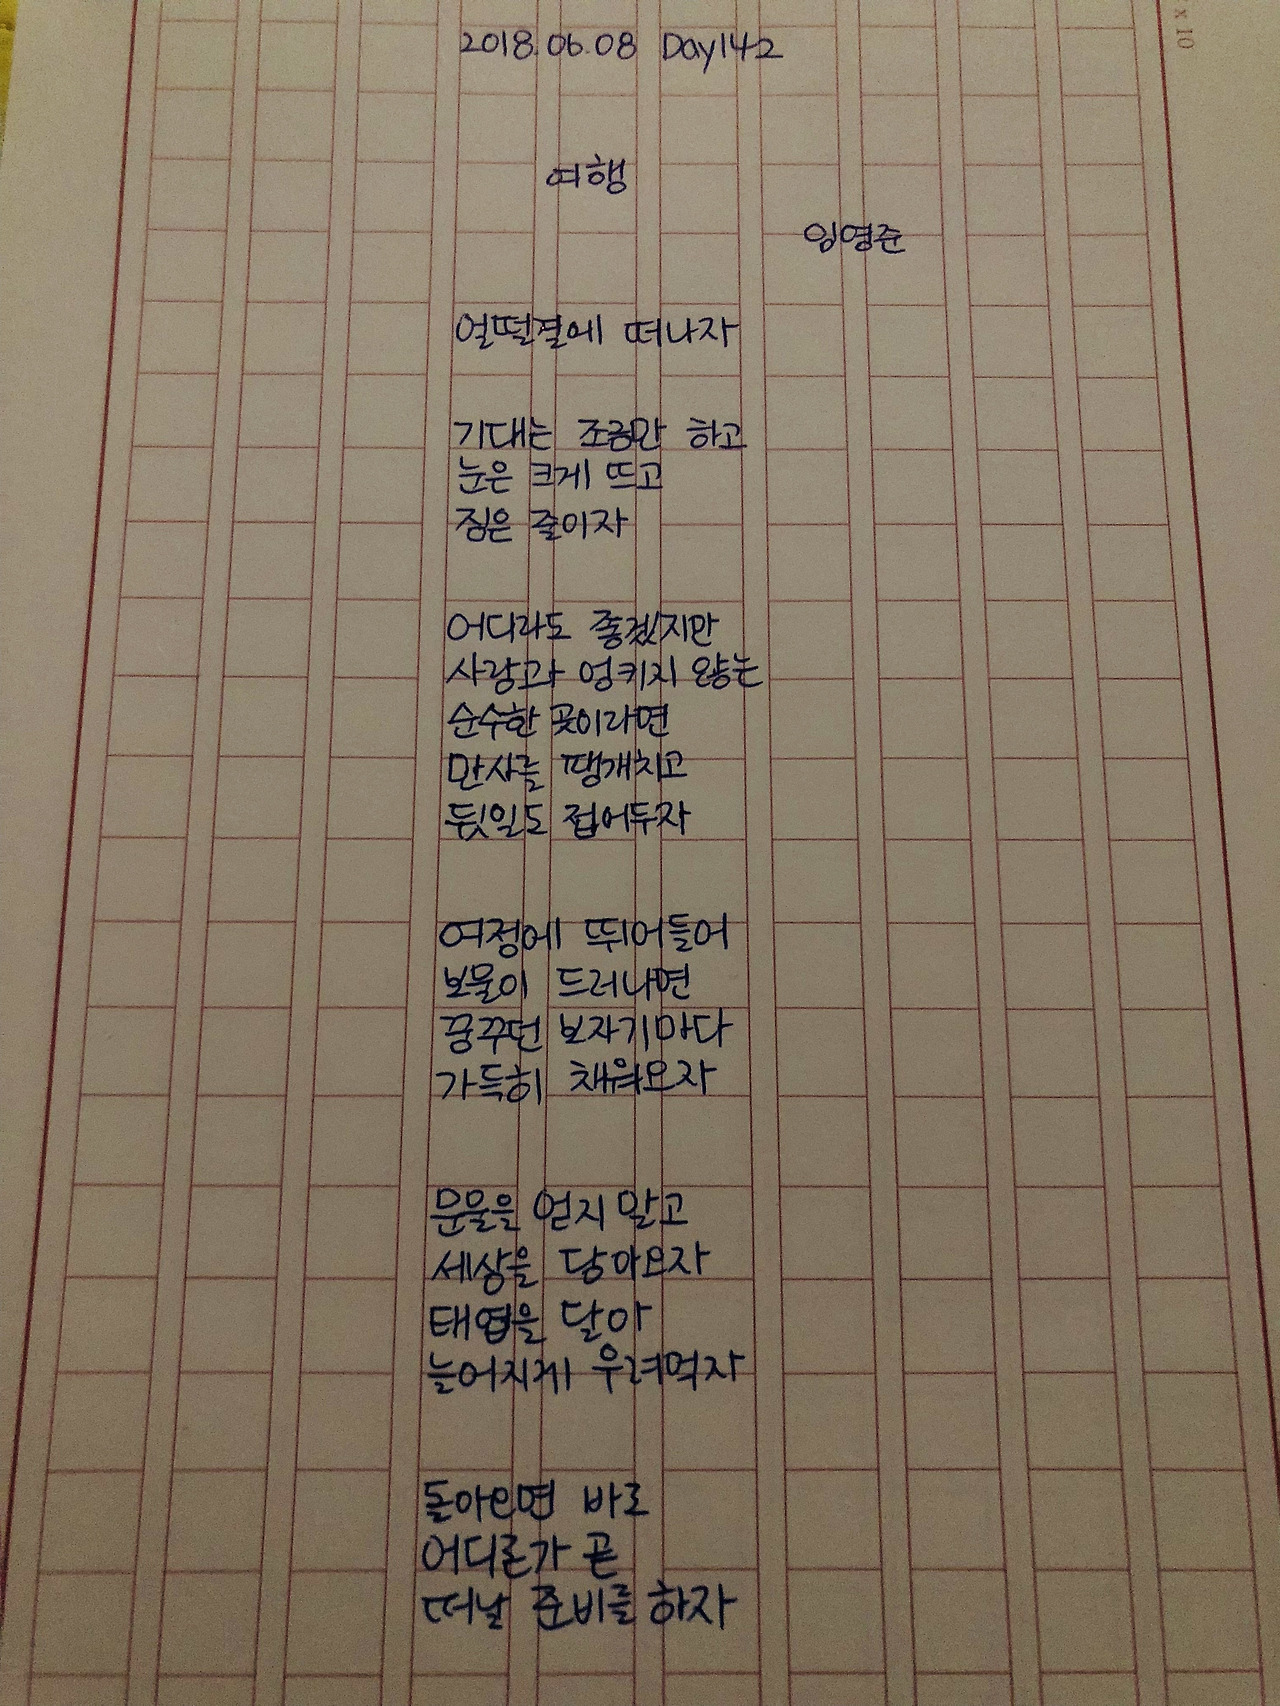 2018.06.08 Day142
x 10
여행
임영준
얼떨결에 떠나자
기대는 조금만 하고
눈은 크게 뜨고
짐은 줄이자
어디라도 좋겠지만
사랑과 엉키지 않는
순수한 곳이라면
만사를 땡개치고
뒷일도 접어두자
여정에 뛰어들어
보물이 드러나면
꿈꾸던 보자기마다
가득히 채워오자
문물을 얻지 말고
세상을 담아오자
태엽을 달아
늘어지게 우려먹자
돌아오면 바로
어디론가 곧
떠날 준비를 하자